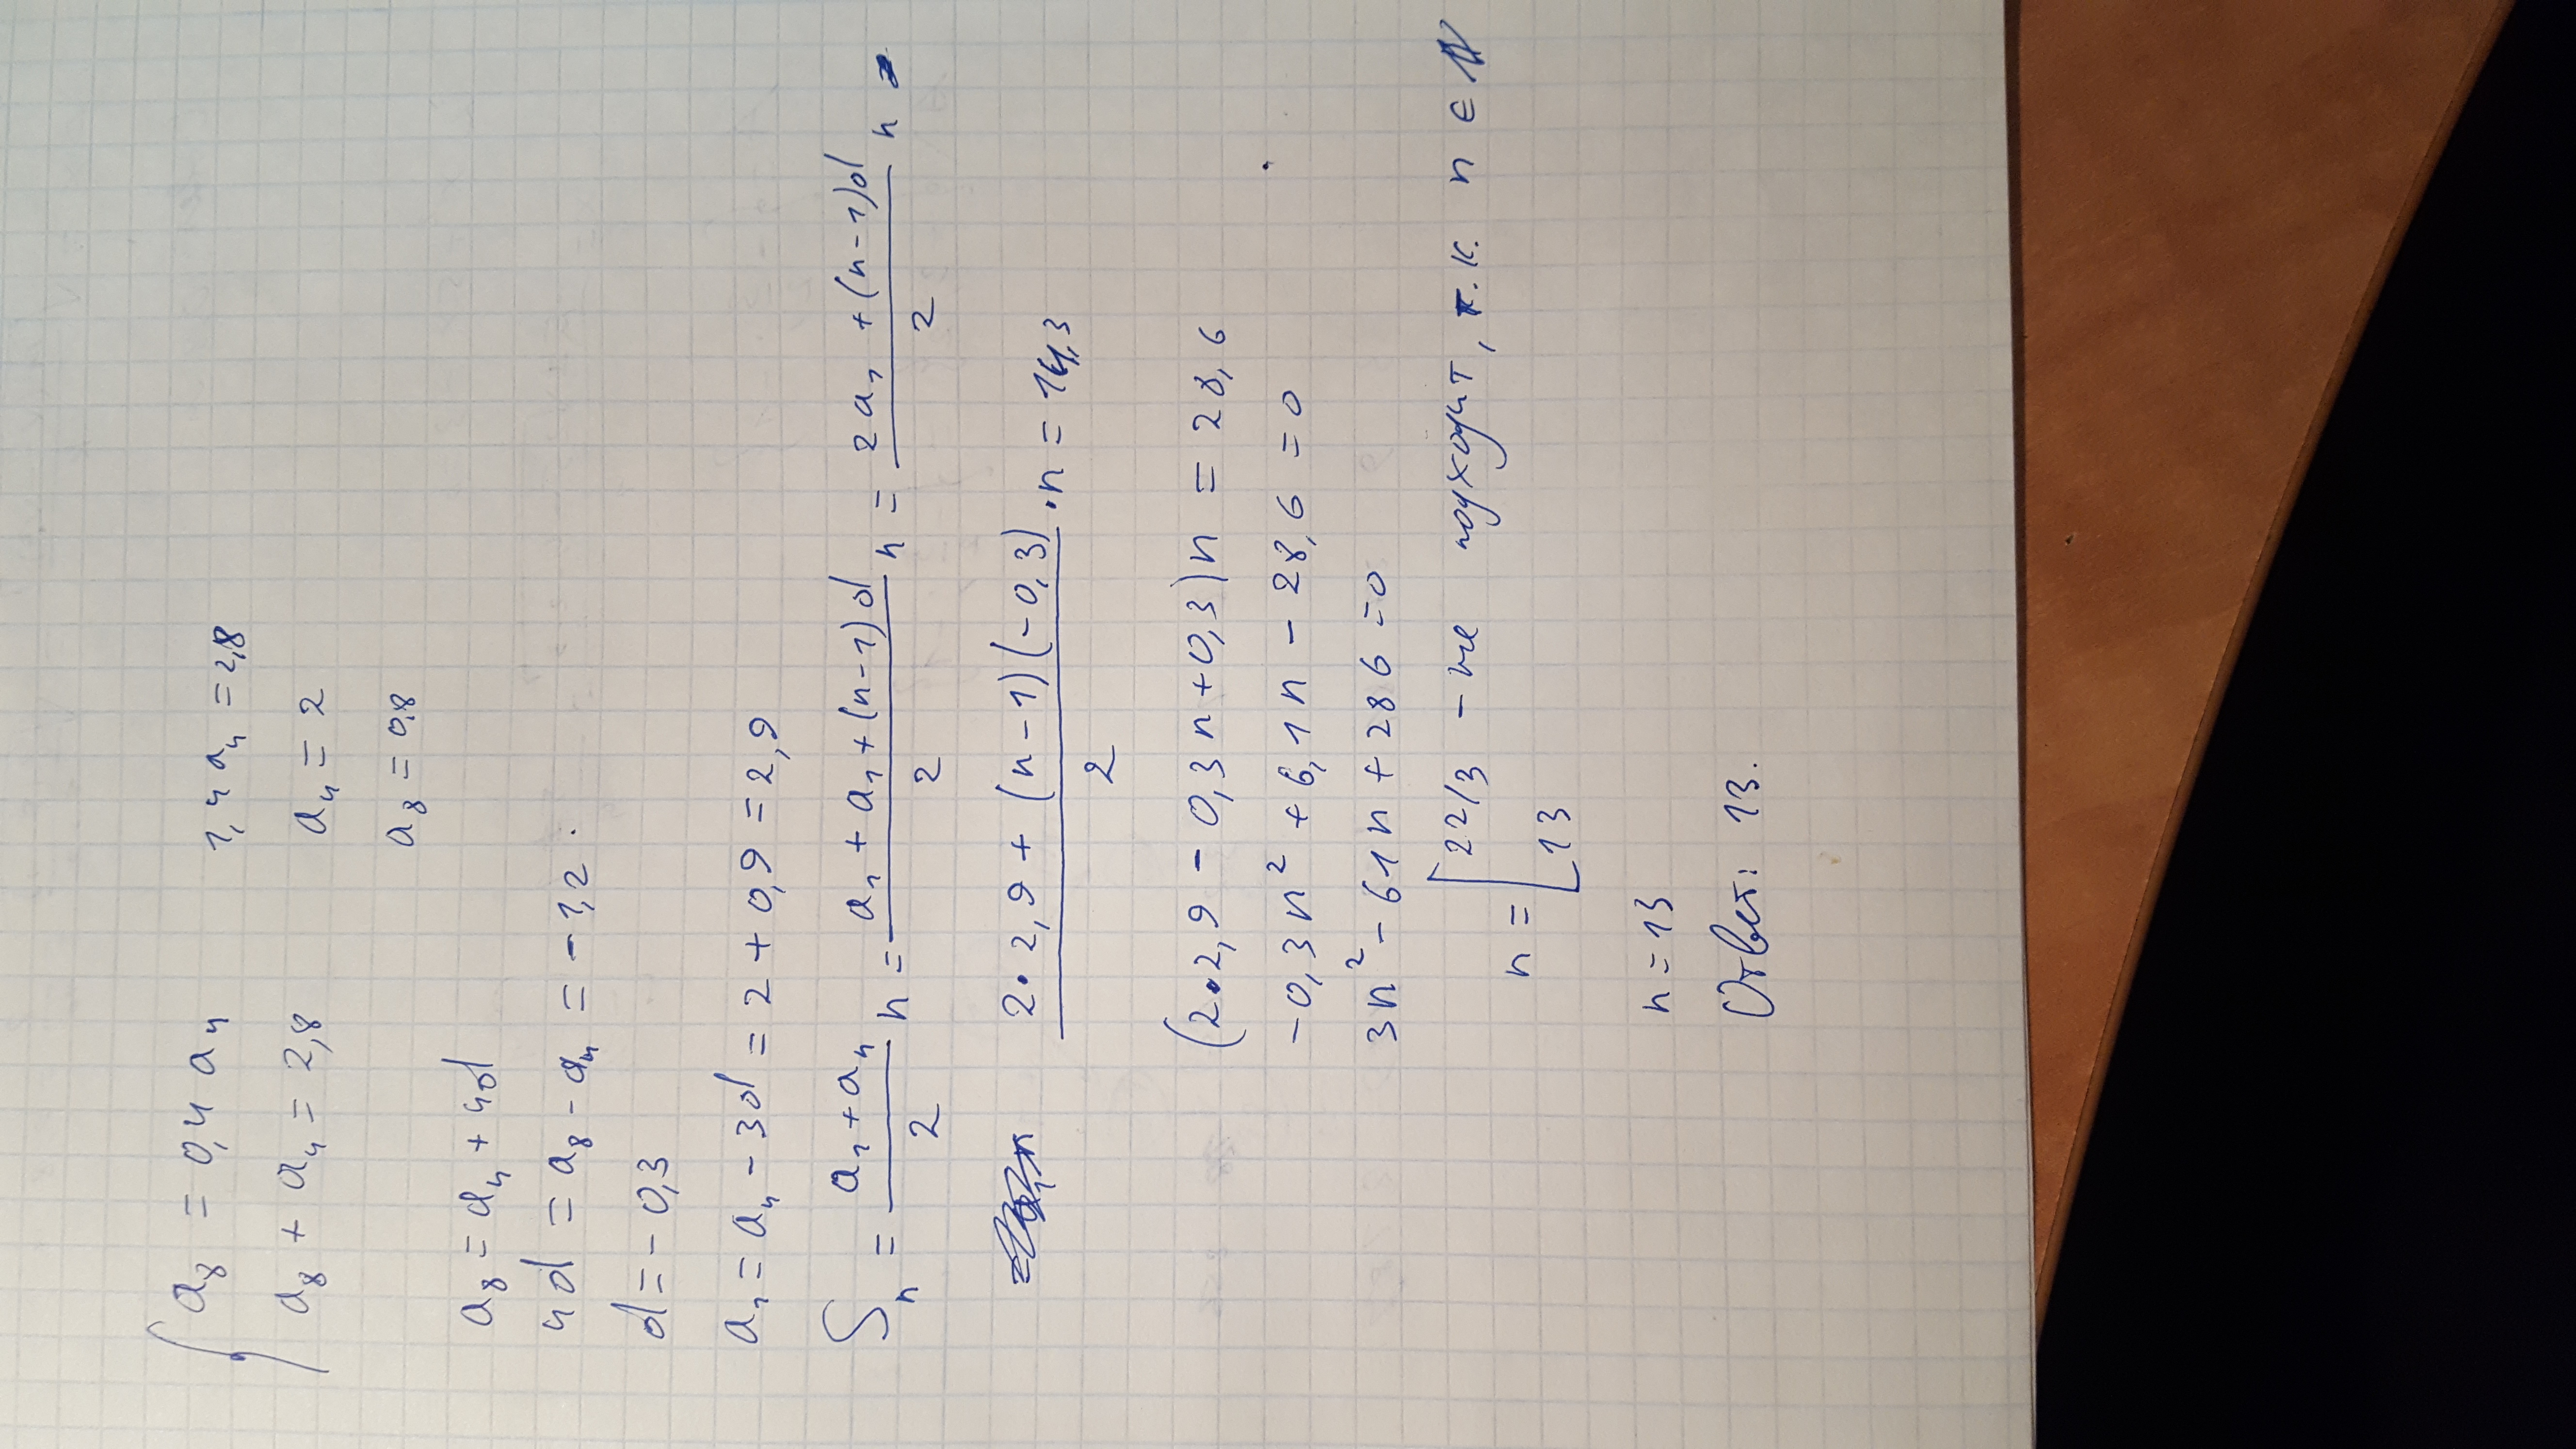 { a₈ = 0,4 a₄ 1,4 a₄ = 2,8
a₈ + a₄ = 2,8 a₄ = 2
a₈ = 0,8
a₈ = a₄ + 4d
4d = a₈ - a₄ = -1,2.
d = -0,3
a₁ = a₄ - 3d = 2 + 0,9 = 2,9
Sₙ = (a₁ + aₙ)/2 n = (a₁ + a₁ + (n-1)d)/2 n = (2a₁ + (n-1)d)/2 n
(2·2,9 + (n-1)(-0,3))/2 · n = 14,3
(2·2,9 - 0,3n + 0,3)n = 28,6
-0,3n² + 6,1n - 28,6 = 0
3n² - 61n + 286 = 0
n = [ 22/3 - не подходит, т.к. n ∈ N
13
n = 13
Ответ: 13.